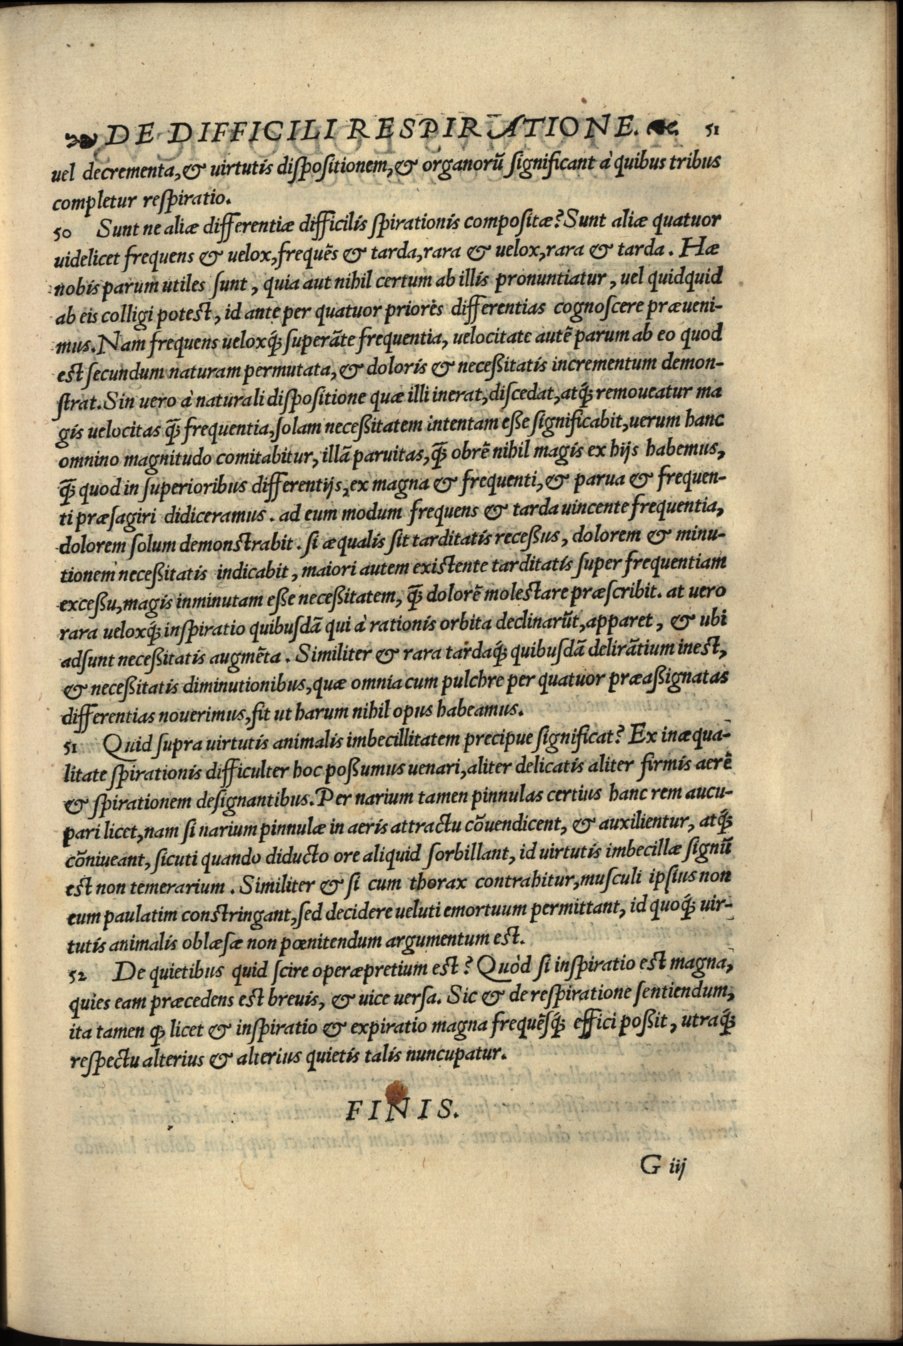 DE DIFFICILI RESPIRATIONE. 51
uel decrementa, & uirtutis dispositionem, & organorū significant à quibus tribus
completur respiratio.
50 Sunt ne aliæ differentiæ difficilis spirationis compositæ? Sunt aliæ quatuor
uidelicet frequens & uelox, frequēs & tarda, rara & uelox, rara & tarda. Hæ
nobis parum utiles sunt, quia aut nihil certum ab illis pronuntiatur, uel quidquid
ab eis colligi potest, id ante per quatuor priorēs differentias cognoscere præueni-
mus. Nam frequens ueloxq́; superāte frequentia, uelocitate autē parum ab eo quod
est secundum naturam permutata, & doloris & neceßitatis incrementum demon-
strat. Sin uero à naturali dispositione quæ illi inerat, discedat, atq́; remoueatur ma
gis uelocitas q̃; frequentia, solam neceßitatem intentam eße significabit, uerum hanc
omnino magnitudo comitabitur, illā paruitas, q̃; obrē nihil magis ex hijs habemus,
q̃; quod in superioribus differentijs, ex magna & frequenti, & parua & frequen-
ti præsagiri didiceramus. ad eum modum frequens & tarda uincente frequentia,
dolorem solum demonstrabit. si æqualis sit tarditatis receßus, dolorem & minu-
tionem neceßitatis indicabit, maiori autem existente tarditatis super frequentiam
exceßu, magis inminutam eße necessitatem, q̃; dolorē molestare præscribit. at uero
rara ueloxq́; inspiratio quibusdā qui à rationis orbita declinarūt, apparet, & ubi
adsunt necessitatis augmēta. Similiter & rara tardaq́; quibusdā delirātium inest,
& neceßitatis diminutionibus, quæ omnia cum pulchre per quatuor præaßignatas
differentias nouerimus, fit ut harum nihil opus habeamus.
51 Quid supra uirtutis animalis imbecillitatem precipue significat? Ex inæqua-
litate spirationis difficulter hoc poßumus uenari, aliter delicatis aliter firmis aerē
& spirationem designantibus. Per narium tamen pinnulas certius hanc rem aucu-
pari licet, nam si narium pinnulæ in aeris attractu cōuendicent, & auxilientur, atq́;
cōniueant, sicuti quando diducto ore aliquid sorbillant, id uirtutis imbecillæ signū
est non temerarium. Similiter & si cum thorax contrahitur, musculi ipsius non
eum paulatim constringant, sed decidere ueluti emortuum permittant, id quoq́; uir-
tutis animalis oblæsæ non pœnitendum argumentum est.
52 De quietibus quid scire operæpretium est? Quòd si inspiratio est magna,
quies eam præcedens est breuis, & uice uersa. Sic & de respiratione sentiendum,
ita tamen q; licet & inspiratio & expiratio magna frequēsq́; effici poßit, utraq́;
respectu alterius & alterius quietis talis nuncupatur.
FINIS.
G iij